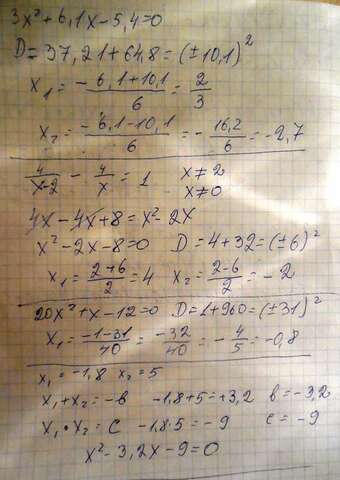 3x² + 6,1x - 5,4 = 0
D = 37,21 + 64,8 = (±10,1)²
x₁ = (-6,1+10,1)/6 = 2/3
x₂ = (-6,1-10,1)/6 = -16,2/6 = -2,7
4/(x-2) - 4/x = 1 x≠2
x≠0
4x - 4x + 8 = x² - 2x
x² - 2x - 8 = 0 D = 4 + 32 = (±6)²
x₁ = (2+6)/2 = 4 x₂ = (2-6)/2 = -2
20x² + x - 12 = 0 D = 1 + 960 = (±31)²
x₁ = (-1-31)/40 = -32/40 = -4/5 = -0,8
x₁ = -1,8 x₂ = 5
x₁ + x₂ = -в -1,8 + 5 = +3,2 в = -3,2
x₁ · x₂ = c -1,8·5 = -9 c = -9
x² - 3,2x - 9 = 0